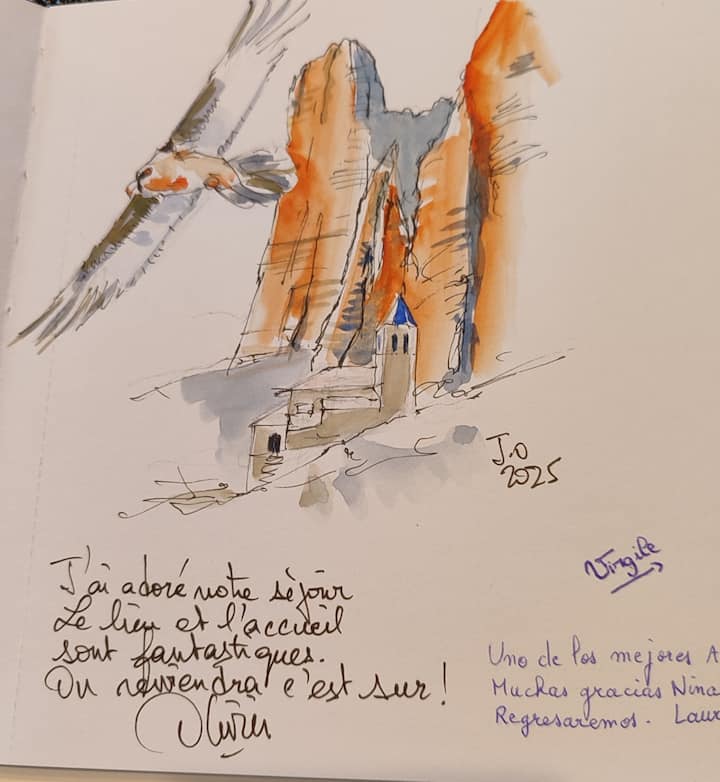 J.O
2025
J'ai adoré notre séjour
Le lieu et l'accueil
sont fantastiques.
On reviendra c'est sur !
Olivier
Virgile
Uno de los mejores A
Muchas gracias Nina
Regresaremos. Laur